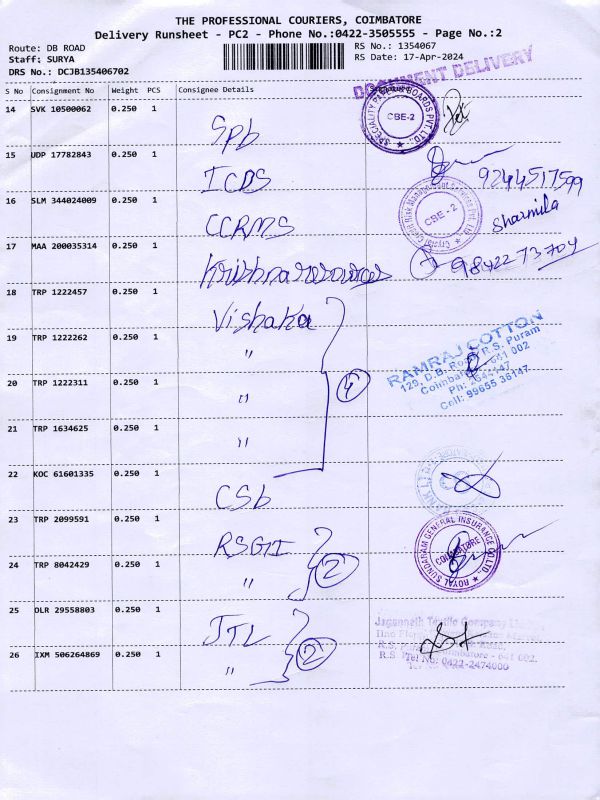 THE PROFESSIONAL COURIERS, COIMBATORE
Delivery Runsheet - PC2 - Phone No.:0422-3505555 - Page No.:2
Route: DB ROAD
RS No.: 1354067
Staff: SURYA
RS Date: 17-Apr-2024
DRS No.: DCJB135406702
DOCUMENT DELIVERY
S No Consignment No Weight PCS Consignee Details
14 SVK 10500062 0.250 1 Spb
SPECIALITY PAPER BOARDS PVT. LTD.,
CBE-2
15 UDP 17782843 0.250 1 ICDS
9244517599
16 SLM 344024009 0.250 1 CCRMS
CBE - 2
Sharmila
17 MAA 200035314 0.250 1 Krishna resources
98422 73704
18 TRP 1222457 0.250 1 Vishaka
19 TRP 1222262 0.250 1 "
4
RAMRAJ COTTON
129, D.B. Road, R.S. Puram
Coimbatore - 641 002
Ph: 2542147
Cell: 99655 36147
20 TRP 1222311 0.250 1 "
21 TRP 1634625 0.250 1 "
22 KOC 61601335 0.250 1 CSb
23 TRP 2099591 0.250 1 RSGI
ROYAL SUNDARAM GENERAL INSURANCE CO. LTD.,
COIMBATORE
24 TRP 8042429 0.250 1 "
2
25 DLR 29558803 0.250 1 JTL
2
Jagannath Textile Company
26 IXM 506264869 0.250 1 "
R.S. Coimbatore - 641 002.
Tel No: 0422-2474000